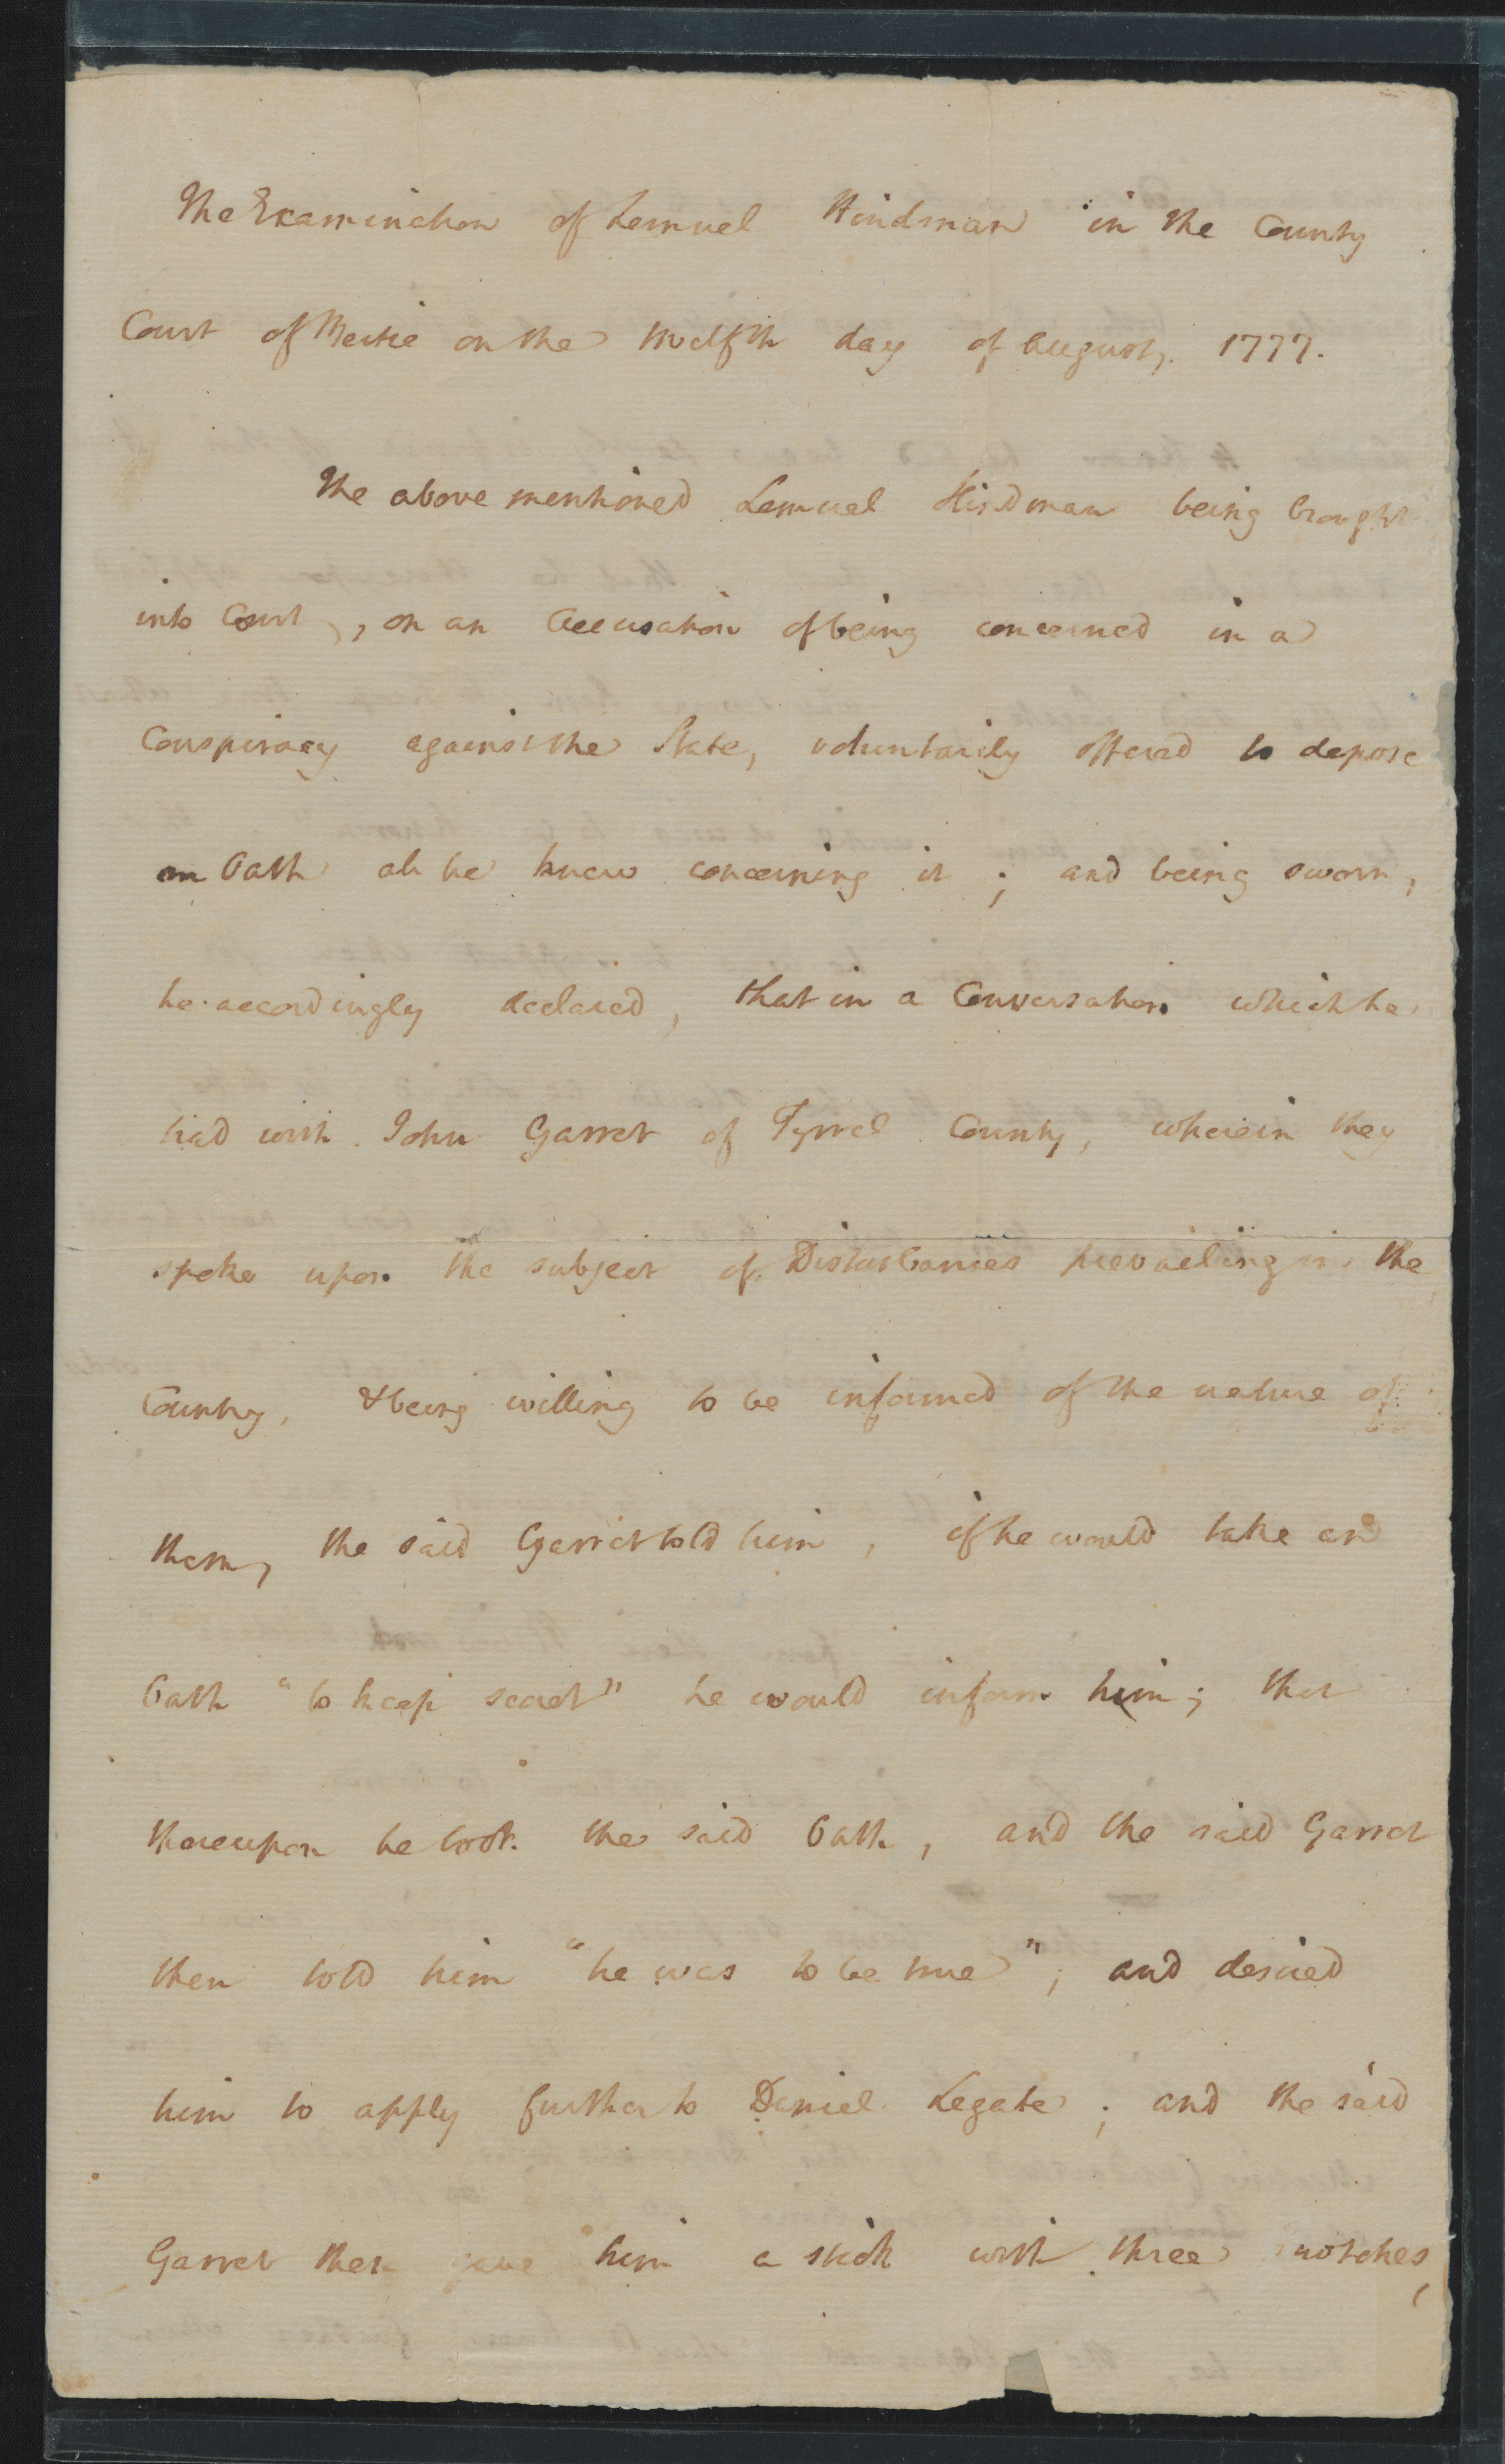 The Examination of Lemuel Hindsman in the County
Court of Bertie on the twelfth day of August, 1777.
The above mentioned Lemuel Hindman being brought
into Court, on an Accusation of being concerned in a
Conspiracy against the State, voluntarily offered to depose
on Oath all he knew concerning it; and being sworn,
he accordingly declared, that in a Conversation which he
had with John Garret of Tyrrel County, wherein they
spoke upon the subject of Disturbances prevailing in the
Country, & being willing to be informed of the nature of
them, the said Garret told him, if he would take an
Oath "to keep secret" he would inform him; that
thereupon he took the said Oath, and the said Garret
then told him "he was to be true"; and desired
him to apply further to Daniel Legate; and the said
Garret then gave him a stick with three notches,